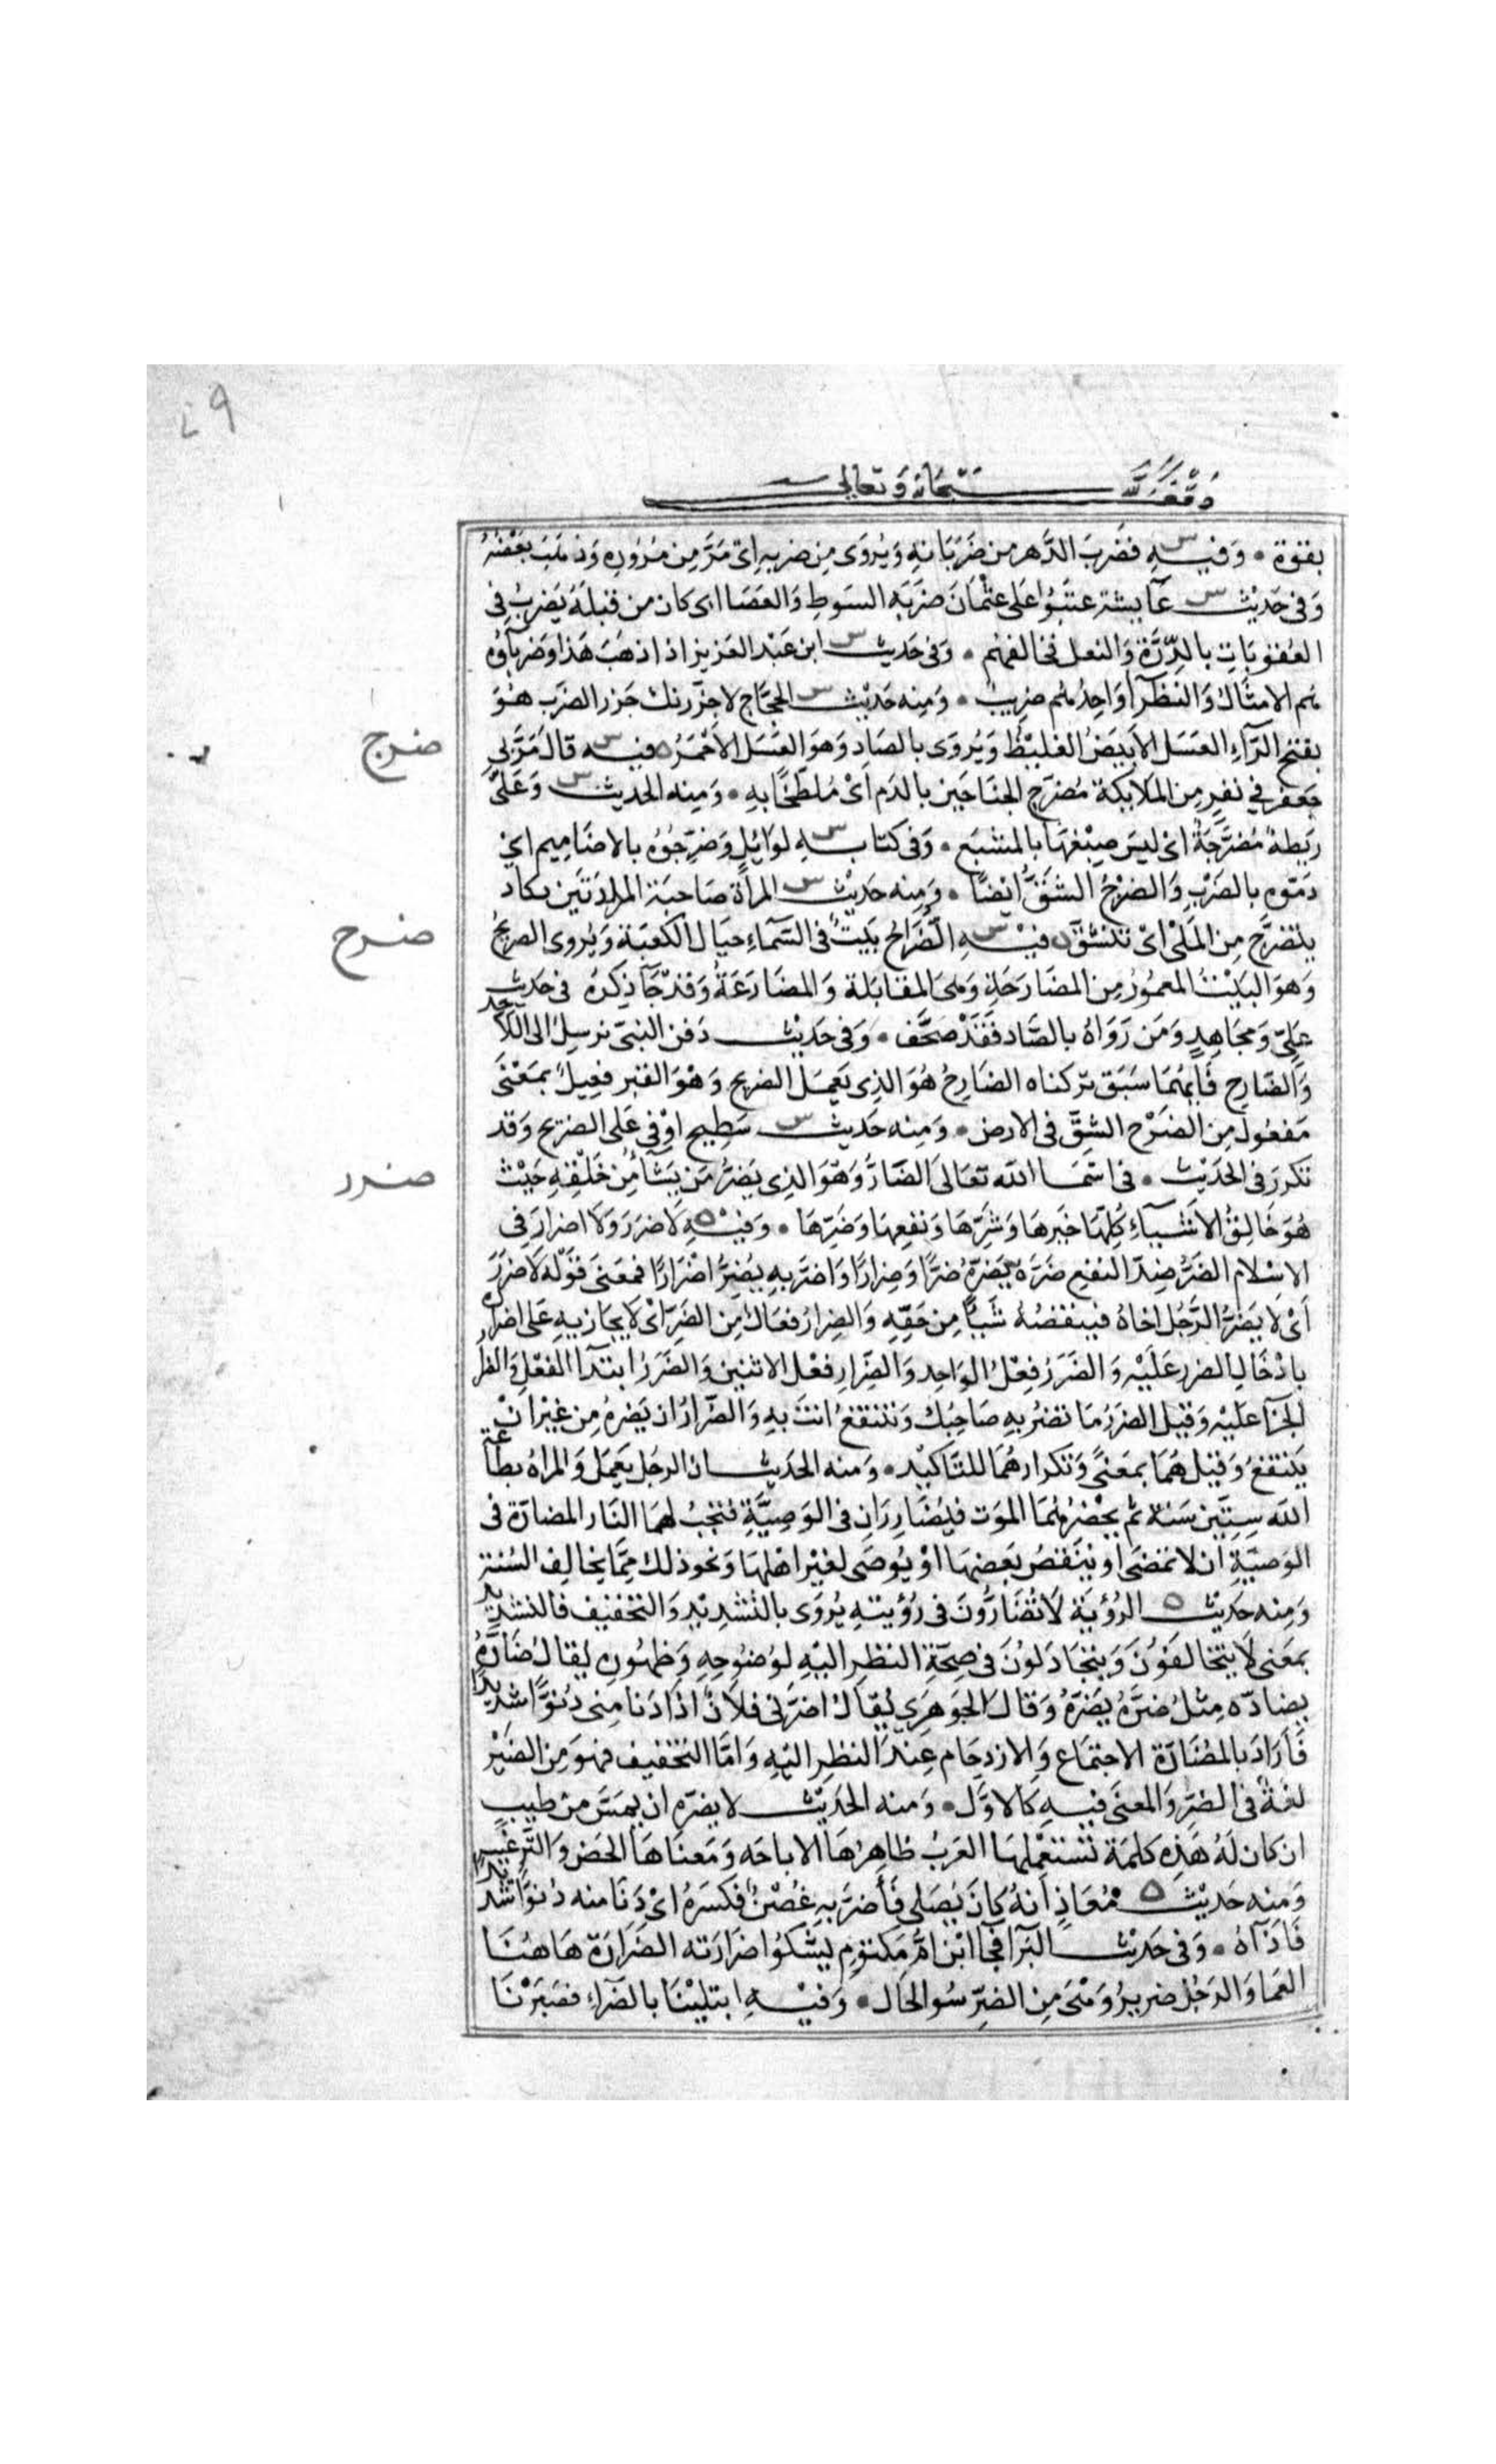 وقف لله سبحانه وتعالى
بقوة • وَفيه س فضَربَ الدَّهر من ضَرَبَانهِ وَيُروَى مِن ضربهِ اى مَرَّ مِن مُرُورِه وَذهَبَ بَعْضُهُ
وَفى حَديث س عَآيشة عتبُوا عَلى عثْمانَ ضَرَبَه السَوطِ وَالعَصَا اى كان من قبلَهُ يَضربُ فى
العُقوبَاتِ بالدِّرَّة وَالنعل فخالفهُم • وَفى حَديث س ابن عَبْد العَزيز اذا ذهَبَ هَذا وَضُربَآؤه
هُم الامثَالُ وَالنظَرآ وَاحِدُهُم ضريبٌ • وَمِنه حَديْث س الحجَّاج لاجزُرنك جَزر الضرَب هُوَ
بفتح الرَّآءِ العَسَل الاَبيَضُ الغليْظُ وَيُروَى بالصَادِ وَهوَ العَسَل الاَحْمَرُ ه فيه س قالَ مَرَّ بى
ضرج
جَعفر فى نفرٍ مِن المَلاَئِكة مُضرَّج الجنَاحَين بالدَم اَىْ مُلطّخًا بهِ • وَمِنه الحديث س وَعَلَىَّ
رَيطةٌ مُضَرَّجَةٌ اى ليسَ صِبْغهَا بالمشبَع • وَفى كتابه س لوَائِلٍ وَضرِّجُوهُ بالاضَامِيم اىْ
دَمّوه بالضَرْبِ وَالضرْجُ الشقُّ اَيْضًا • وَمِنه حَديْث س المرأة صَاحبَة المزادَتَين تكاد
يتضرَّج مِن المَلْىْ اىْ تنْشقّ ه فيْه س الضُّرَاحُ بَيتٌ فى السَّمآءِ حيَال الكعبَة وَيُروى الضريحُ
ضرح
وَهوَ البَيْتُ المعمُورُ مِن المضَارَحَةِ وَهىَ المقابَلة وَالمضَارَعَةُ وَقدْ جَآ ذِكرُهُ فى حَديث
عَلِىّ وَمجَاهِدٍ وَمَن رَوَاهُ بالصَّاد فَقَدْ صَحَّف • وَفى حَديْث دَفن النبىّ نرسِلُ الى اللاَّحِد
وَالضَّارِحِ فَاَيهُمَا سَبَق تركناه الضَارِحُ هُوَ الذِى يَعمَل الضريح وَهْوَ القبَر فعِيلٌ بمَعْنَى
مَفعُولٍ مِن الضَرْح الشقِّ فى الارض • وَمِنه حَديث س سَطِيح اوْفى عَلى الضريح وَقد
تكررَ فى الحَدَيْث • فى اسْمَا الله تعَالىَ الضَّارُّ وَهْوَ الذِى يَضرُّ مَن يَشَآ مِن خَلْقِهِ حَيْث
ضرر
هُوَ خَالِقُ الاشيَآءِ كلِّهَا خَيرهَا وَشَرِّهَا وَنفعِهَا وَضَرِّهَا • وَفيْه ه لَا ضَرَرَ وَلَا اضرارَ فى
الاِسْلام الضَرُّ ضِدّ النفع ضَرَّه يَضرّهُ ضرًّا وَضِرارًا وَاضرّ بهِ يُضِرُّ اضْرَارًا فمعنَى قَوْله لَا ضَرَرَ
اَىْ لا يَضرُّ الرَّجُل اخاهُ فينقصُهُ شَيئًا مِن حَقّهِ وَالضِرارُ فعَالٌ مِن الضَرّ اىْ لَا يجَازيهِ عَلى اضرَاره
بادْخَالِ الضرر عَلَيْه وَالضَرَرُ فِعْلُ الوَاحِد وَالضِّرار فعْل الاثنين وَالضَّرَرُ ابتدَآ الفعْل وَالضرار
الجزَآ عَليْه وَقيْل الضَرَرُ مَا تضرُّ بهِ صَاحِبَك وَتنتفعُ انتَ بهِ وَالضّرارُ ان يَضرهُ مِن غيْر انْ
يَنتفعَ وَقيْل هُمَا بمَعنًى وَتكرارهُمَا للتَّاكيْد • وَمنه الحَديث ان الرجُل يَعمَل وَالمراهُ بطَاعَة
الله سِتّيْن سَنة ثم يحْضرُهُمَا المَوت فيُضَارِرَانِ فى الوَصِيَّةِ فتجبُ لهمَا النَار المضَارّة فى
الوَصيّةِ اَن لا تمضَى او ينْقصُ بَعضهَا اوْ يُوصَى لغيْر اهْلهَا وَنحو ذلك مِمَّا يخالِف السُنة
وَمِنه حَديْث ه الرؤيَة لَا تُضَارُّونَ فى رُؤيتهِ يُروَى بالتشْدِيْدِ وَالتخفيْف فالتشديد
بمعَنى لَا يتخالفوُنَ وَيتجَادَلوُنَ فى صِحّةِ النظرِ اليْهِ لوُضوُحِهِ وَظهُورِهِ يُقالُ ضَارَّهُ
يضارّه مِثلُ ضَرَّهُ يَضرّهُ وَقالَ الجَوهَرى يُقالُ اضرّنى فلَانٌ اذا دَنا مِنى دُنوًّا شديدًا
فَاَرَادَ بالمضَارّة الاجتمَاع وَالازدِحَام عِندَ النظر اليْهِ وَامَّا التخفيف فهوَ مِن الضَيْر
لغة فى الضرِّ وَالمعنَى فيْهِ كَالاوَّل • وَمنه الحَدَيْث لا يضرّه ان يمَسَّ مِن طيب
ان كان لَهُ هَذِه كلمَة تسْتعْملهَا العَرَبُ ظاهِرهَا الاباحَه وَمَعنَاهَا الحَض وَالتّرغيب
وَمنه حَديْث ه مُعَاذٍ اَنهُ كانَ يُصَلى فَاَضرّ بهِ غُصْنٌ فكسَرهُ اىْ دَنَا منه دُنوًّا شديدًا
فَاذَآهُ • وَفى حَديْث البَرآ فجآ ابْن امّ مَكتوُمٍ يَشْكوُا ضرَارَته الضرَارَة هَاهُنَا
العَمَا وَالرَجُل ضريرٌ وَهْىَ مِن الضرّ سُو الحَال • وَفيْهِ ابتليْنَا بالضَرآءِ فصَبَرْنَا